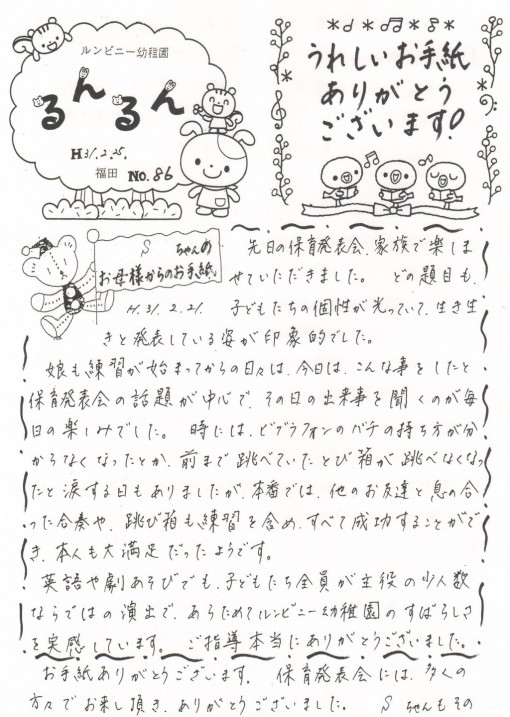 ルンビニー幼稚園
るんるん
H31.2.25.
福田 No.86
うれしいお手紙
ありがとう
ございます!
S ちゃんの
お母様からのお手紙
H.31.2.21.
先日の保育発表会、家族で楽しま
せていただきました。 どの題目も、
子どもたちの個性が光っていて、生き生
きと発表している姿が印象的でした。
娘も練習が始まってからの日々は、今日は、こんな事をしたと
保育発表会の話題が中心で、その日の出来事を聞くのが毎
日の楽しみでした。 時には、ビブラフォンのバチの持ち方が分
からなくなったとか、前まで跳べていたとび箱が跳べなくなっ
たと涙する日もありましたが、本番では、他のお友達と息の合
った合奏や、跳び箱も練習を含め、すべて成功することがで
き、本人も大満足だったようです。
英語や劇あそびでも、子どもたち全員が主役の少人数
ならではの演出で、あらためてルンビニー幼稚園のすばらしさ
を実感しています。 ご指導本当にありがとうございました。
お手紙ありがとうございます。 保育発表会には、多くの
方々でお来し頂き、ありがとうございました。 S ちゃんもその